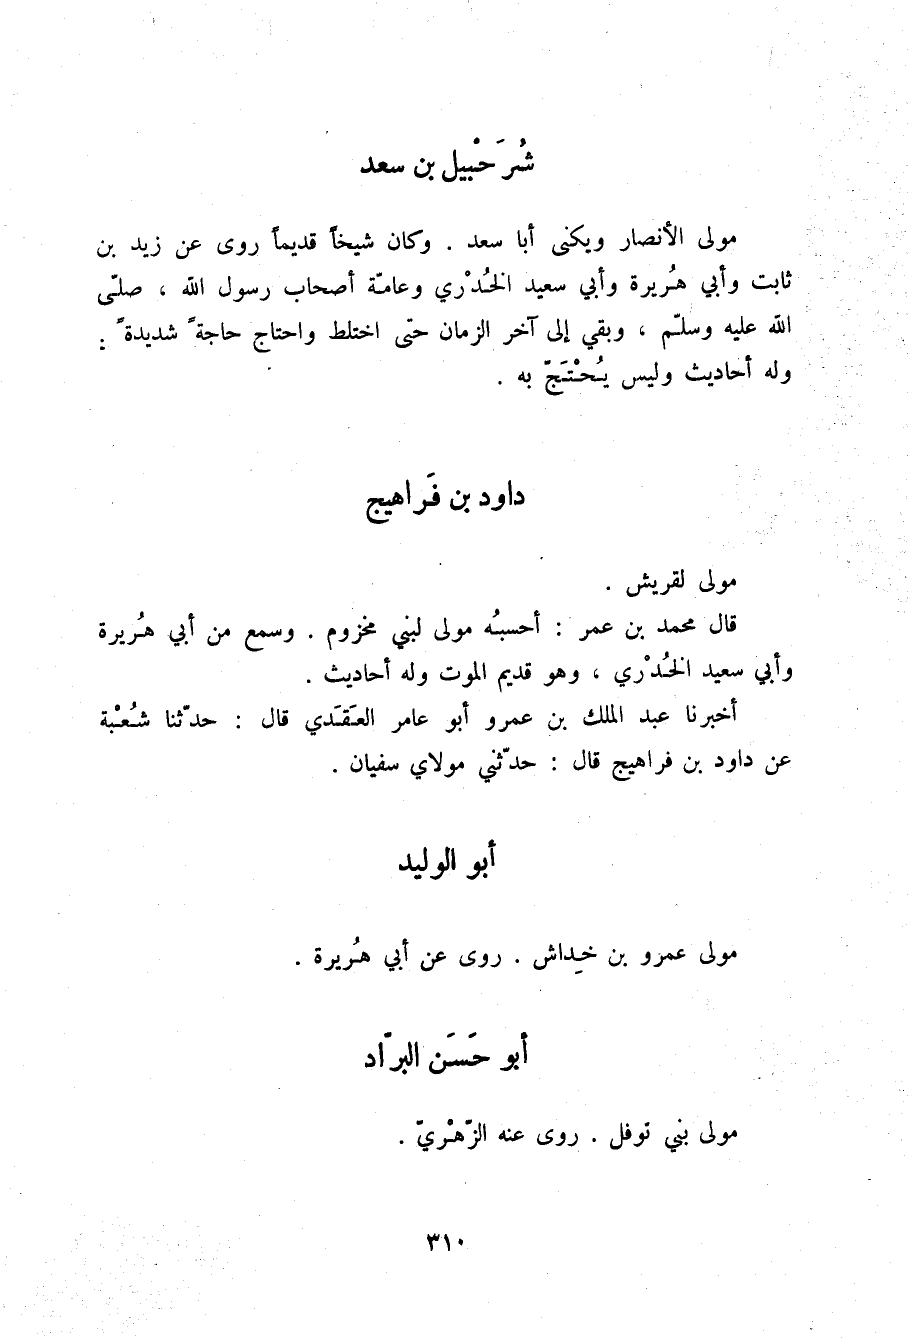 شُرَحْبيل بن سعد
مولى الأنصار ويكنى أبا سعد . وكان شيخاً قديماً روى عن زيد بن
ثابت وأبي هُريرة وأبي سعيد الخُدْري وعامّة أصحاب رسول الله ، صلّى
الله عليه وسلّم ، وبقي إلى آخر الزمان حتّى اختلط واحتاج حاجةً شديدةً .
وله أحاديث وليس يُحْتَجّ به .
داود بن فَراهيج
مولى لقريش .
قال محمد بن عمر : أحسبُه مولى لبني مخزوم . وسمع من أبي هُريرة
وأبي سعيد الخُدْري ، وهو قديم الموت وله أحاديث .
أخبرنا عبد الملك بن عمرو أبو عامر العَقَدي قال : حدّثنا شُعْبة
عن داود بن فراهيج قال : حدّثني مولاي سفيان .
أبو الوليد
مولى عمرو بن خِداش . روى عن أبي هُريرة .
أبو حَسَن البرّاد
مولى بني نوفل . روى عنه الزّهْريّ .
٣١٠